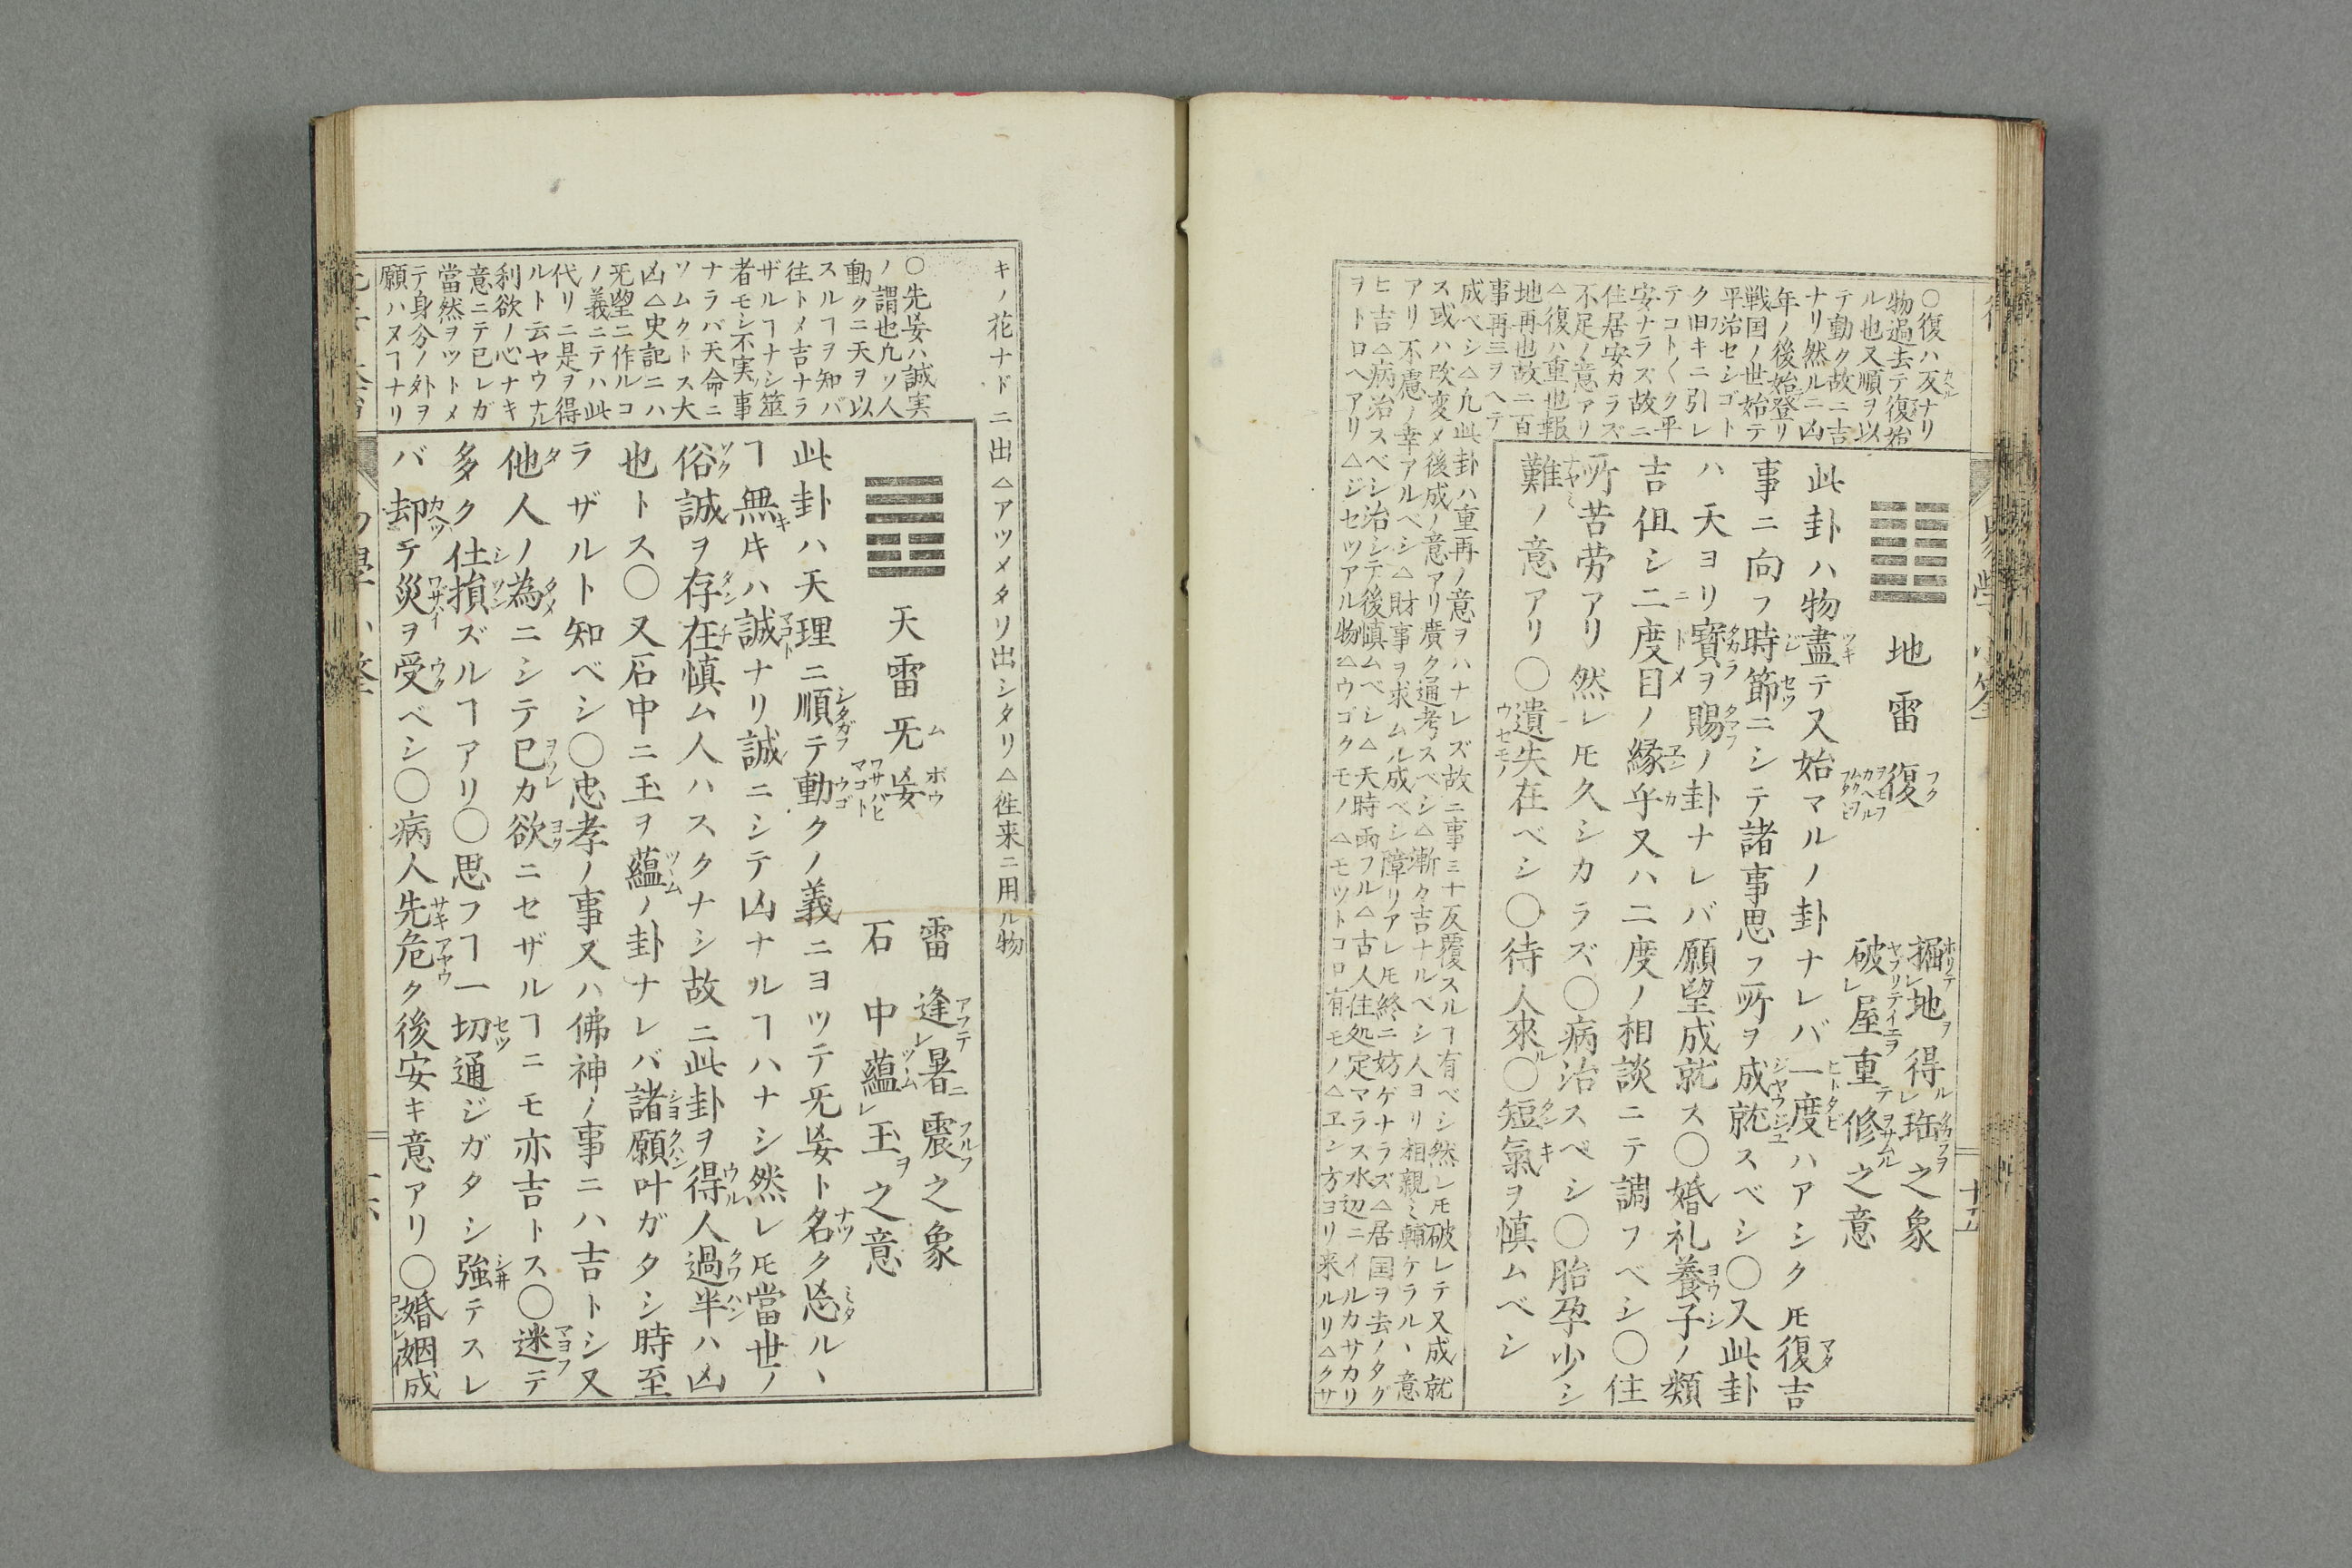 ○復ハ反ナリ
物過去テ復始
ル也又順ヲ以
テ動ク故ニ吉
ナリ然ルニ凶
年ノ後始登リ
戦国ノ世始テ
平治セシゴト
ク旧キニ引レ
テコト〱ク平
安ナラズ故ニ
住居安カラズ
不足ノ意アリ
△復ハ重也報
地再也故ニ百
事再三ヲヘテ
成ベシ△凡此卦ハ重再ノ意ヲハナレズ故ニ事三十反覆スルヿ有ベシ然レ𪜈破レテ又成就
ス或ハ改変メ後成ノ意アリ廣ク通考スベシ△漸々吉ナルベシ人ヨリ相親ミ輔ケラルヽ意
アリ不慮ノ幸アルベシ△財事ヲ求ムル成ベシ障リアレ𪜈終ニ妨ゲナラズ△居国ヲ去ノタグ
ヒ吉△病治スベシ治シテ後慎ムベシ△天時雨フル△古人住処定マラス水辺ニイルカサカリ
ヲトロヘアリ△ジセツアル物△ウゴクモノ△モツトコロ有モノ△ヱシ方ヨリ来ルリ△クサ
地雷復
掘地得珤之象
破屋重修之意
此卦ハ物盡テ又始マルノ卦ナレバ一度ハアシク𪜈復吉
事ニ向フ時節ニシテ諸事思フ所ヲ成就スベシ○又此卦
ハ天ヨリ寳ヲ賜ノ卦ナレバ願望成就ス○婚礼養子ノ類
吉但シ二度目ノ縁乎又ハ二度ノ相談ニテ調フベシ○住
所苦労アリ然レ𪜈久シカラズ○病治スベシ○胎孕少シ
難ノ意アリ○遺失在ベシ○待人來ル○短氣ヲ慎ムベシ
十五
キノ花ナドニ出△アツメタリ出シタリ△徃来ニ用ル物
○先妄ハ誠実
ノ謂也凡ソ人
動クニ天ヲ以
スルヿヲ知バ
往トメ吉ナラ
ザルヿナシ筮
者モシ不実事
ナラバ天命ニ
ソムクトス大
凶△史記ニハ
无望ニ作ルコ
ノ義ニテハ此
代リニ是ヲ得
ルト云ヤウナル
利欲ノ心ナキ
意ニテ已レガ
當然ヲツトメ
テ身分ノ外ヲ
願ハヌヿナリ
天雷无妄
雷逢暑震之象
石中蘊玉之意
此卦ハ天理ニ順テ動クノ義ニヨツテ无妄ト名ク忌ルヽ
ヿ無キハ誠ナリ誠ニシテ凶ナルヿハナシ然レ𪜈當世ノ
俗誠ヲ存在慎ム人ハスクナシ故ニ此卦ヲ得人過半ハ凶
也トス○又石中ニ玉ヲ蘊ノ卦ナレバ諸願叶ガタシ時至
ラザルト知ベシ○忠孝ノ事又ハ佛神ノ事ニハ吉トシ又
他人ノ為ニシテ已カ欲ニセザルヿニモ亦吉トス○迷テ
多ク仕損ズルヿアリ○思フヿ一切通ジガタシ強テスレ
バ却テ災ヲ受ベシ○病人先危ク後安キ意アリ○婚姻成